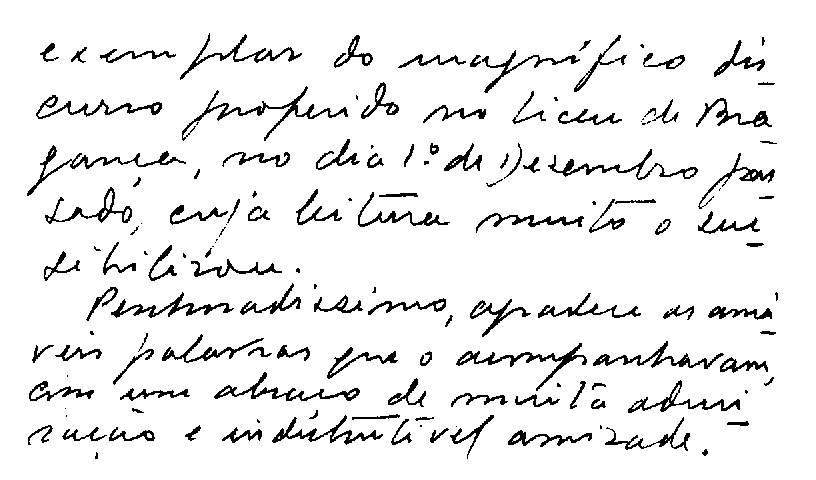 exemplar do magnífico dis-
curso proferido no Liceu de Bra-
gança, no dia 1.º de Dezembro pas-
sado, cuja leitura muito o sen-
sibilizou.
Penhoradíssimo, agradece as amá-
veis palavras que o acompanhavam,
com um abraço de muita admi-
ração e indestrutível amizade.